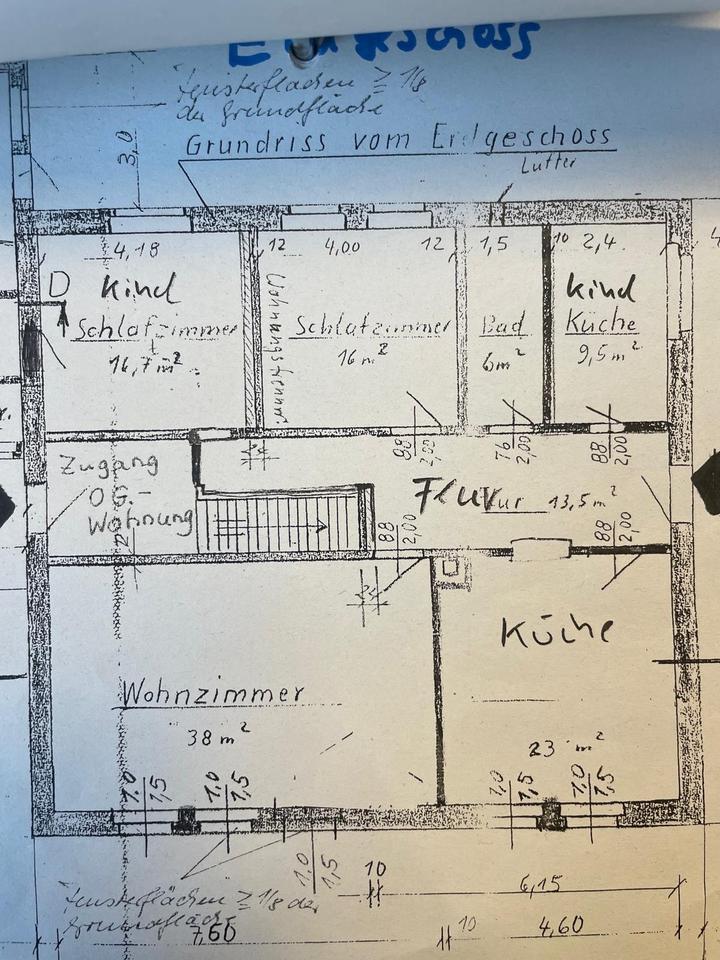 Erdgeschoss
Fensterflächen ≥ 1/8
der Grundfläche
Grundriss vom Erdgeschoss
Lüfter
3,0
4,18
12
4,00
12
1,5
10
2,4
D
Kind
Schlafzimmer
16,7 m²
Wohnungstrennw.
Schlafzimmer
16 m²
Bad
6 m²
Kind
Küche
9,5 m²
88
2,00
76
2,00
88
2,00
Zugang
OG.-
Wohnung
Flur
13,5 m²
88
2,00
88
2,00
Küche
Wohnzimmer
38 m²
23 m²
1,0
1,5
1,0
1,5
1,0
1,5
1,0
1,5
1,0
1,5
Fensterflächen ≥ 1/8 der
Grundfläche
10
6,15
7,60
10
4,60